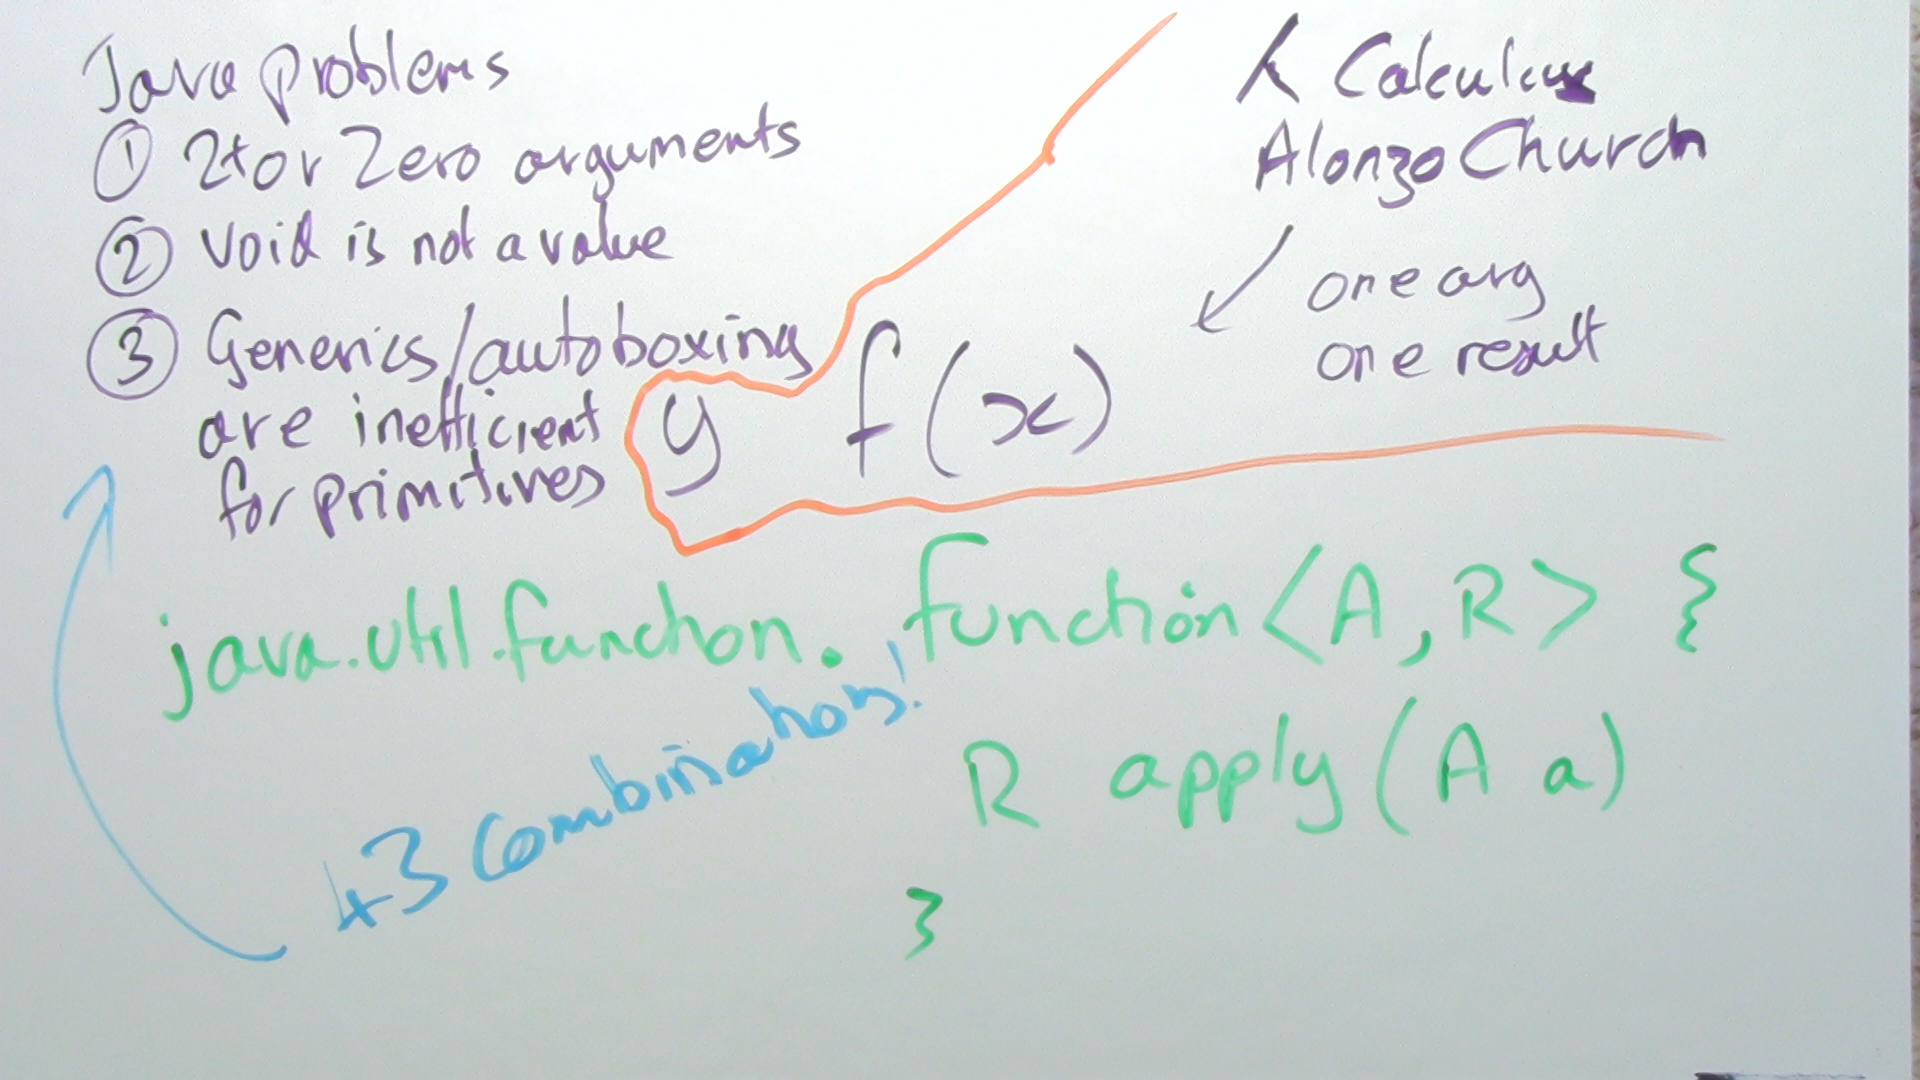 Java problems
① 2+ or Zero arguments
② void is not a value
③ Generics/autoboxing
are inefficient
for primitives
λ Calculus
Alonzo Church
one arg
one result
y f(x)
java.util.function. function<A, R> {
R apply(A a)
}
43 combinations!